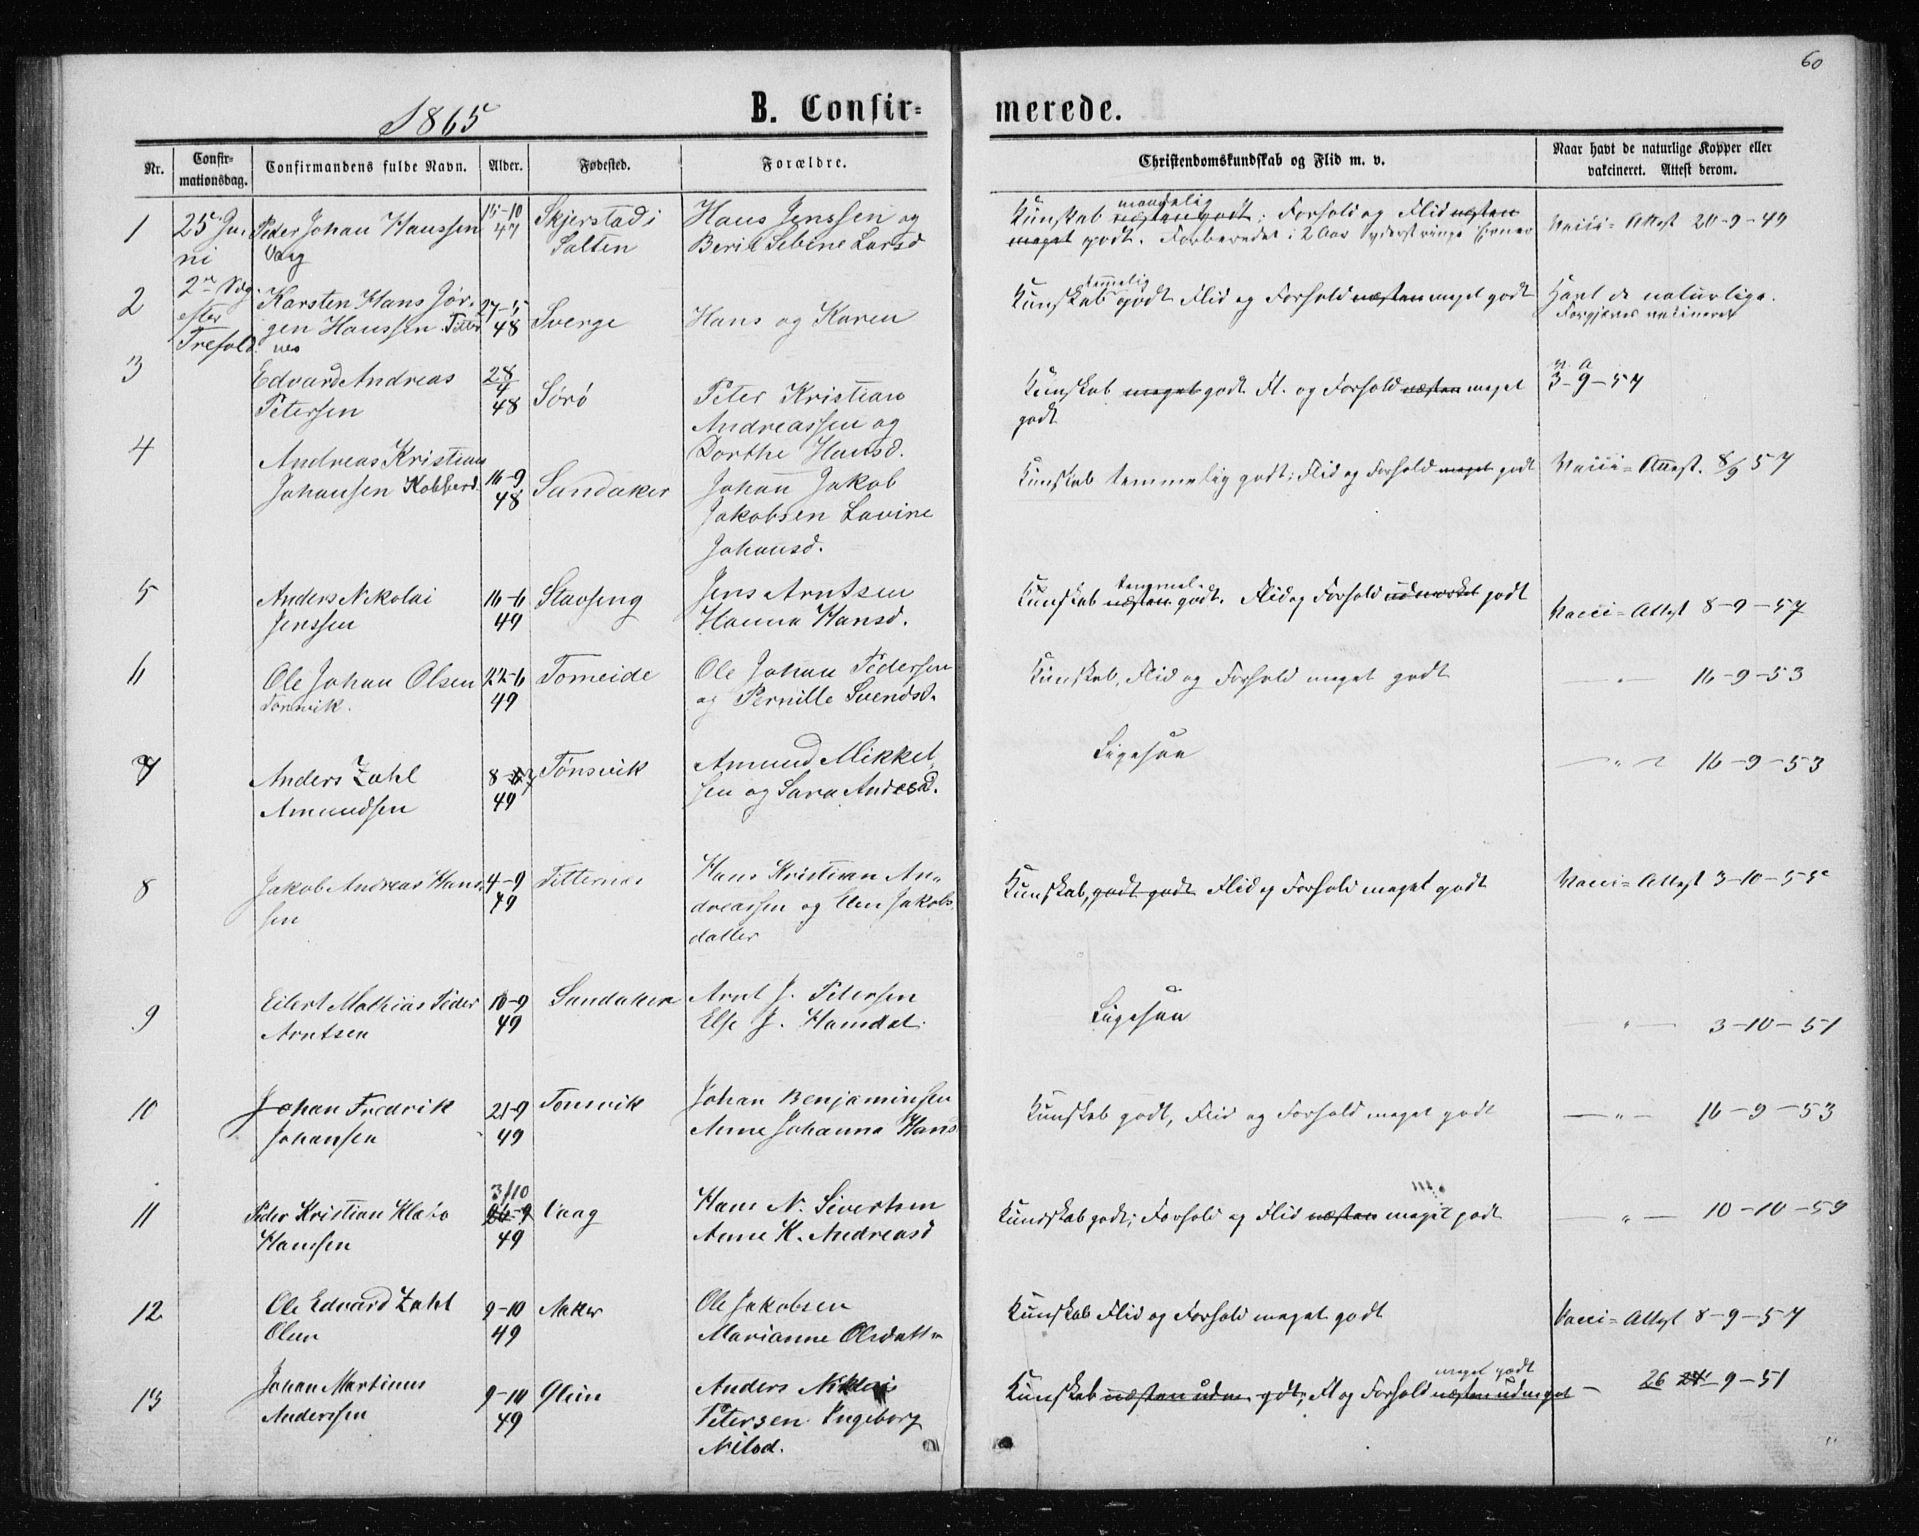 60
1865
B. Confirmerede.
Nr.
Confirmationsdag.
Confirmandens fulde Navn.
Alder.
Fødested.
Forældre.
Christendomskundskab og Flid m. v.
Naar havt de naturlige Kopper eller
vakcineret. Attest derom.
1 25 Ju- Peder Johan Hanssen 15-10 Skjerstad i Hans Jenssen og
ni Vaag 47 Salten Berit Sebine Larsd
Kunskab maadelig næsten godt; Forhold og Flid næsten
meget godt. Forberedet i 2 Aar yderst ringe Evner
Vacci=Attest 20-9-49
2 Karsten Hans Jør- 27-5 Sverge Hans og Karen
gen Hanssen 48
efter
Trefold.
Kunskab temelig godt Flid og Forhold næsten meget godt
Havt de naturlige.
Forgjæves vaccineret
3 Edvard Andreas 28/4 Sørø Peter Kristian
Petersen 48 Andreassen og
Dorthe Hansd.
Kunskab meget godt. Fl. og Forhold næsten meget
godt
v. a
3-9-57
4 Andreas Kristian 16-9 Sandaker Johan Jakob
Johansen 48 Jakobsen Lavine
Johansd.
Kunskab temmelig godt; Flid og Forhold meget godt
Vacci=Attest. 8/9 57
5 Anders Nikolai 16-6 Stavseng Jens Arntsen
Jenssen 49 Hanna Hansd.
Kunskab temmel. næsten godt. Flid og Forhold udmærket godt
Vacci=Attest 8-9-57
6 Ole Johan Olsen 22-6 Tomeide Ole Johan Pedersen
Tonsvik. 49 og Pernille Svendsd.
Kunskab, Flid og Forhold meget godt
— " — 16-9-53
7 Anders Zahl 8- Tønsvik Amund Mikkel-
Amundsen 49 sen og Sara Andersd.
Ligesaa
— " — 16-9-53
8 Jakob Andreas Hans 4-9 Titternes Hans Kristian An-
sen 49 dreassen og Elen Jakobs
datter
Kunskab, godt godt Flid og Forhold meget godt
Vacci=Attest 3-10-55
9 Eilert Mathias Peder 10-9 Sandaker Arnt J. Petersen
Arntsen 49 Else J. Hansdat.
Ligesaa
— " — 3-10-51
10 Johan Fredrik 21-9 Tonsvik Johan Benjaminsen
Johansen 49 Anne Johanna Hans
Kunskab godt, Flid og Forhold meget godt
— " — 16-9-53
3/10
11 Peder Kristian Klæbo 26-9 Vaag Hans N. Sivertsen
Hansen 49 Anne K. Andreasd
Kundskab godt; Forhold og Flid næsten meget godt
— " — 10-10-59
12 Ole Edvard Zahl 9-10 Aaker Ole Jakobsen
Olsen 49 Marianne Olsdatt
Kunskab Flid og Forhold meget godt
Vacci=Attest 8-9-57
13 Johan Martinus 9-10 Glein Anders Niklai
Anderssen 49 Petersen Ingeborg
Nilsd.
meget godt
Kunskab næsten udm. gdt; Fl og Forhold næsten udmget
— 26 24 9-51